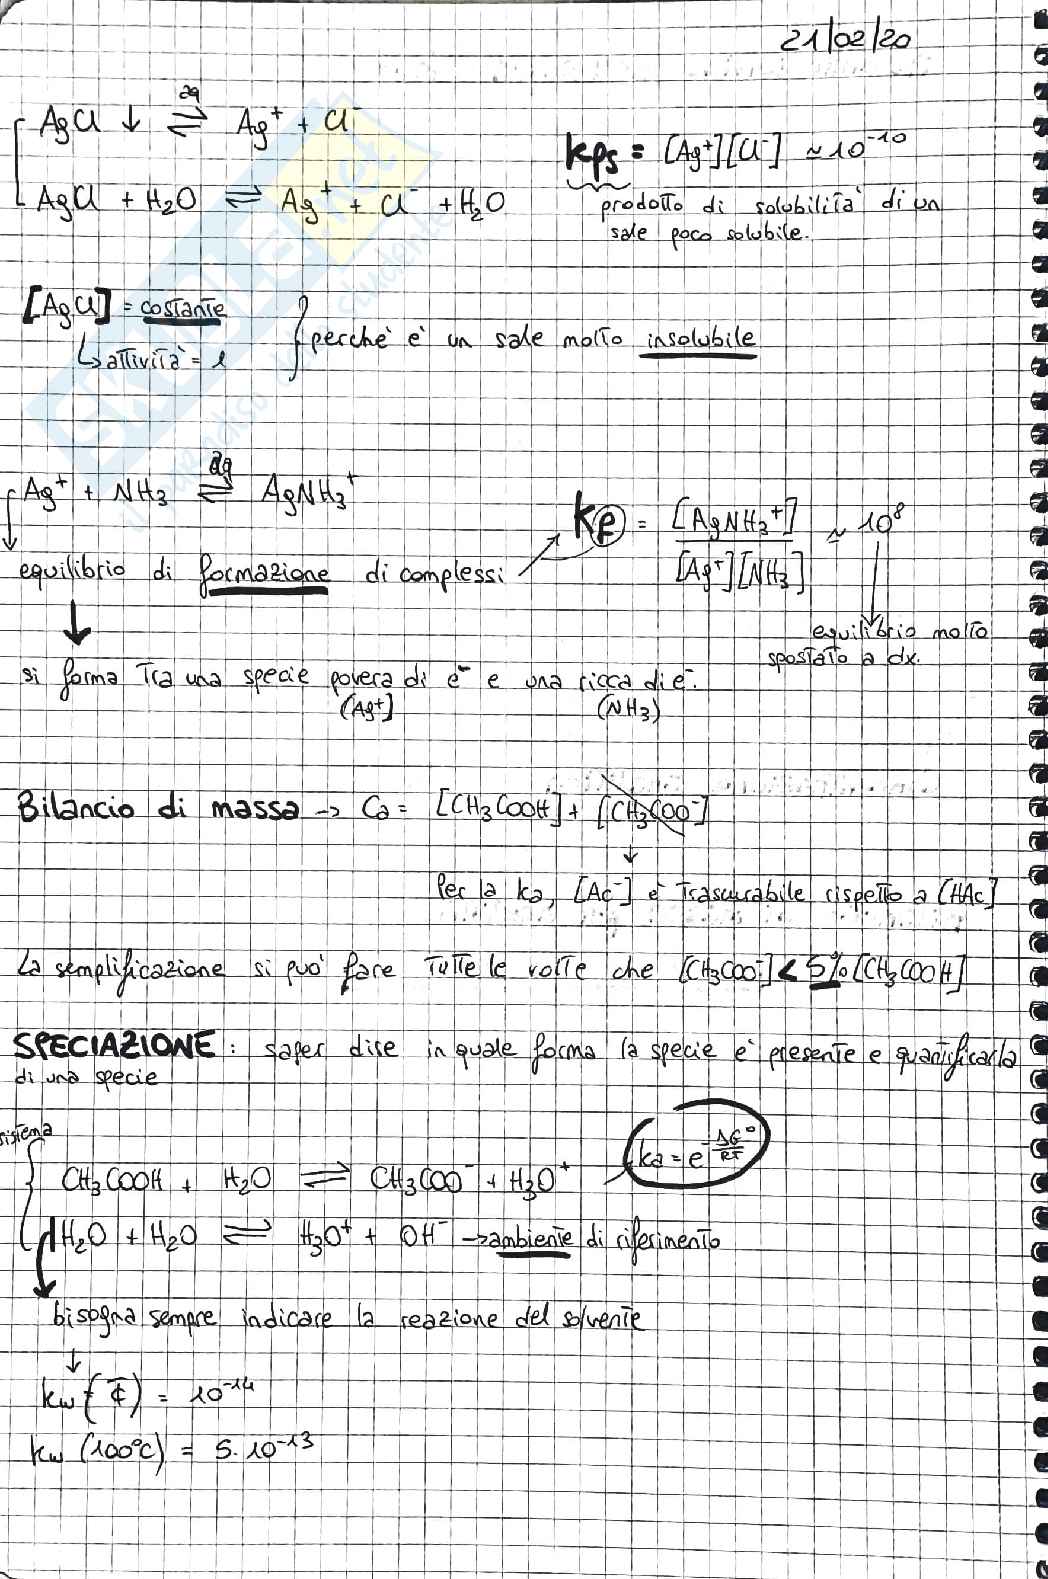 21/02/20
AgCl ↓ ⇌ aq Ag⁺ + Cl⁻
kps = [Ag⁺][Cl⁻] ≃ 10⁻¹⁰
AgCl + H₂O ⇌ Ag⁺ + Cl⁻ + H₂O
prodotto di solubilità di un
sale poco solubile.
[AgCl] = costante
↳ attività = 1
perchè è un sale molto insolubile
Ag⁺ + NH₃ ⇌ aq AgNH₃⁺
kf = [AgNH₃⁺] / [Ag⁺][NH₃] ≃ 10⁸
equilibrio di formazione di complessi
equilibrio molto
spostato a dx.
si forma tra una specie povera di e⁻ e una ricca di e⁻.
(Ag⁺] (NH₃)
Bilancio di massa → Ca = [CH₃COOH] + [CH₃COO⁻]
↓
Per la ka, [Ac⁻] è trascurabile rispetto a [HAc]
La semplificazione si può fare tutte le volte che [CH₃COO⁻] < 5% [CH₃COOH]
SPECIAZIONE: saper dire in quale forma la specie è presente e quantificarla
di una specie
sistema
ka = e^-ΔG°/RT
CH₃COOH + H₂O ⇌ CH₃COO⁻ + H₃O⁺
H₂O + H₂O ⇌ H₃O⁺ + OH⁻ → ambiente di riferimento
bisogna sempre indicare la reazione del solvente
↓
kw = 10⁻¹⁴
kw (100°C) = 5·10⁻¹³